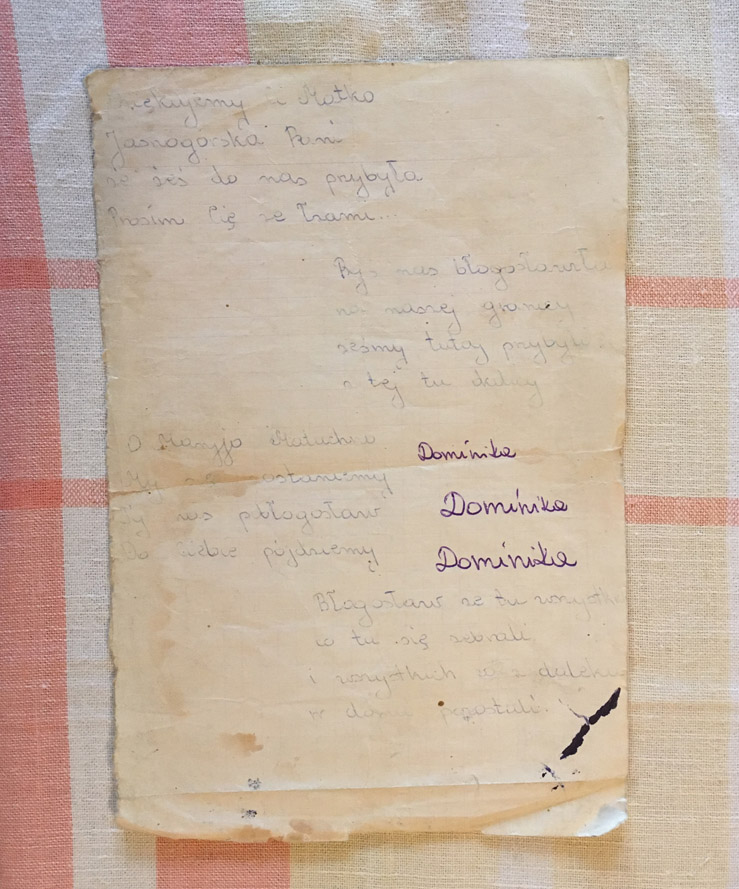 Dziękujemy Ci Matko
Jasnogórska Pani
że żeś do nas przybyła
Prosim Cię ze łzami...
Byś nas błogosławiła
na naszej granicy
żeśmy tutaj przybyli
z tej tu
O Maryjo Matuchno
My
Ty nas pobłogosław
Do Ciebie pójdziemy
Dominika
Dominika
Dominika
Błogosław że tu wszystkim
co tu się zebrali
i wszystkich
w domu pozostali.